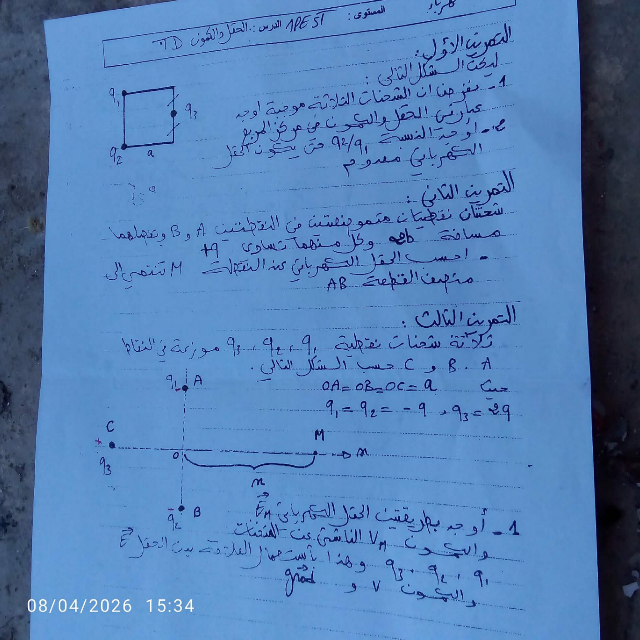 كهرباء المستوى: 1PEST الدرس: الحقل والكمون TD
التمرين الأول:
ليكن الشكل التالي:
1- نفرض أن الشحنات الثلاثة موجبة اوجد
عبارتين الحقل والكمون في مركز المربع
2- أوجد النسبة q2/q1 حتى يكون الحقل
الكهربائي معدوم
q1
q3
q2
a
التمرين الثاني:
شحنتان نقطيتان متموضعتين في النقطتين A و B وتفصلهما
مسافة وكل منهما تساوي +q
- احسب الحقل الكهربائي عند النقطة M تنتمي إلى
منصف القطعة AB
التمرين الثالث:
ثلاثة شحنات نقطية q1 q2 q3 موزعة في النقاط
A . B و C حسب الشكل التالي.
حيث OA=OB=OC=a
q1 = q2 = -q , q3 = 2q
q1 A
C
q3
O
M
x
x
q2 B
1- أوجد بطريقتين الحقل الكهربائي EM
والكمون VM الناشئ عن الشحنات
q1 , q2 , q3 وهذا باستعمال العلاقة بين الحقل E
والكمون V و grad
08/04/2026 15:34